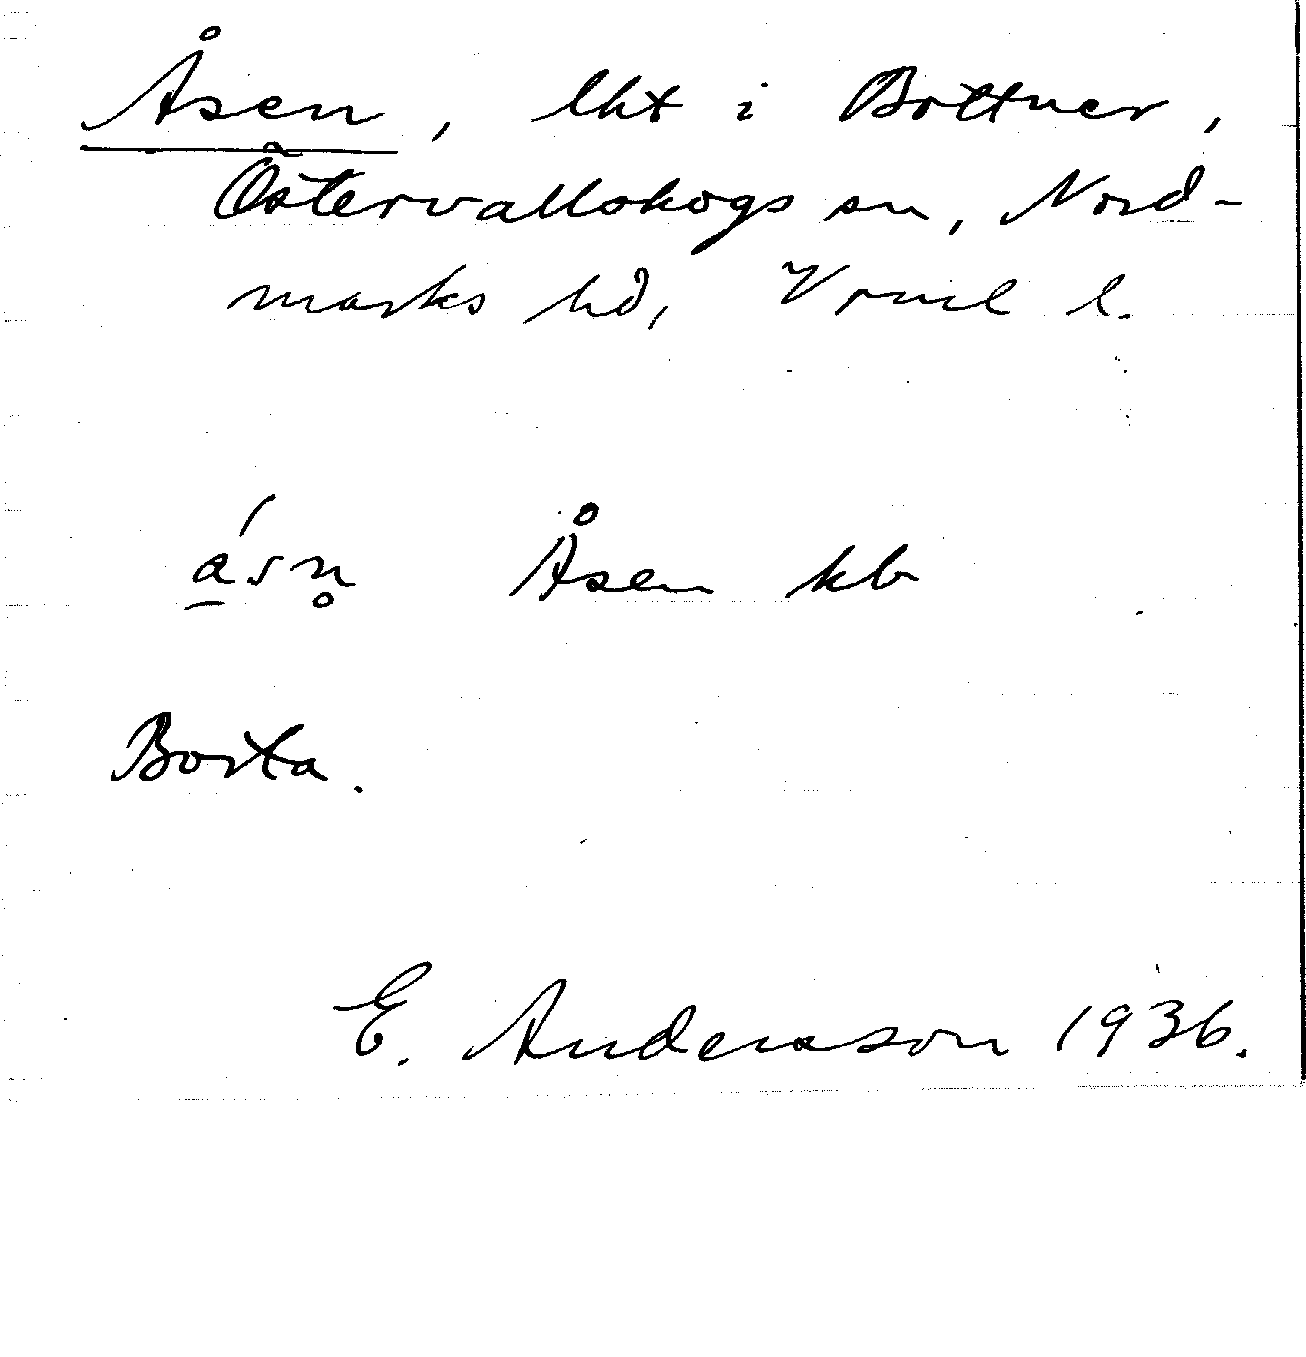 Åsen, lht i Bottner,
Östervallskogs sn, Nord-
marks hd, Vrml l.
Åsen kb
Borta.
E. Andersson 1936.